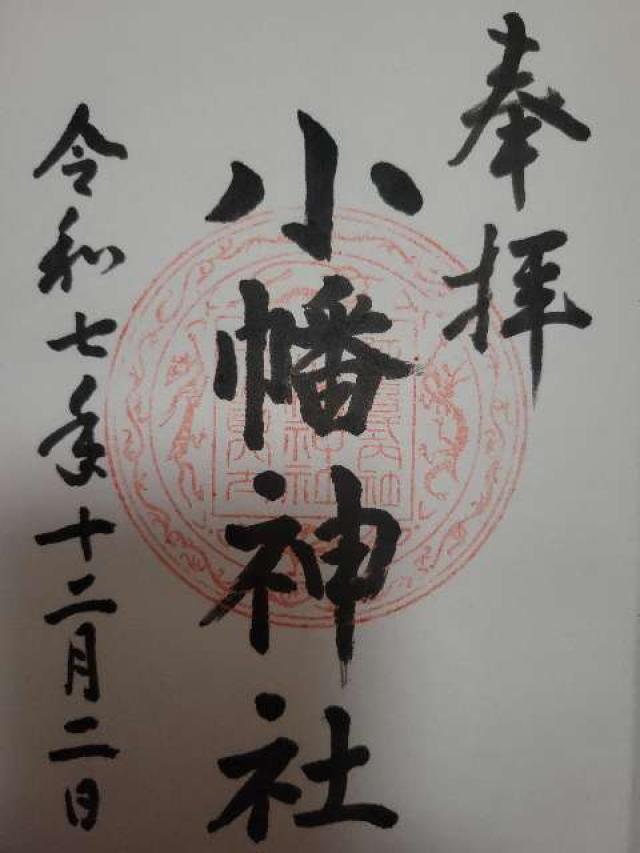 奉拝
小幡神社
令和七年十二月二日